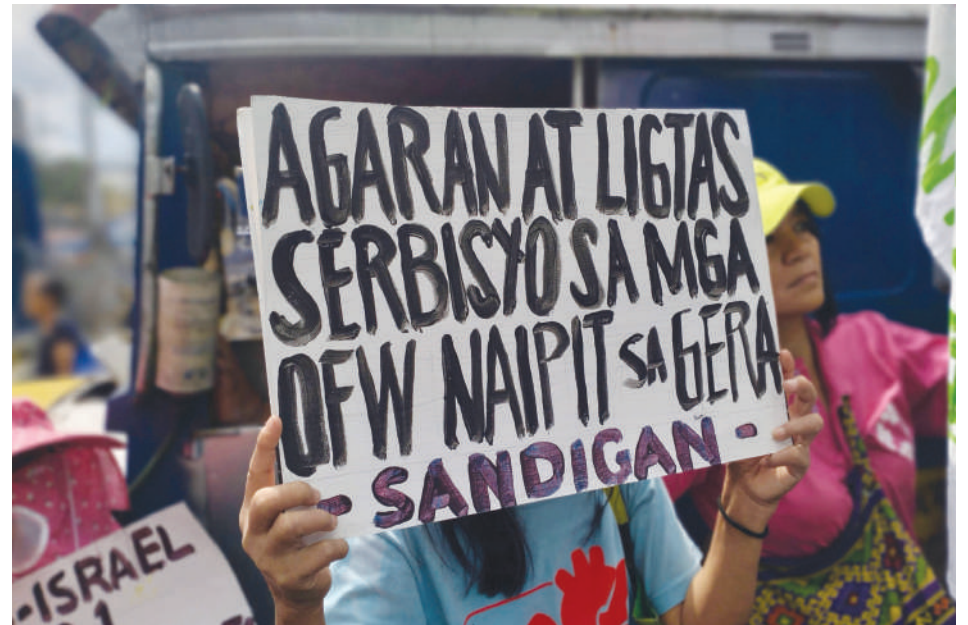 AGARAN AT LIGTAS
SERBISYO SA MGA
OFW NAIPIT SA GERA
- SANDIGAN -
-ISRAEL